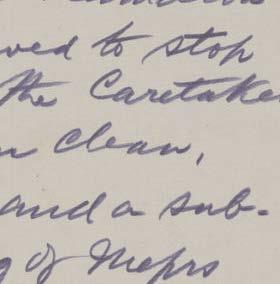 ved to stop
the Caretake
n clean,
and a sub-
g of Messrs